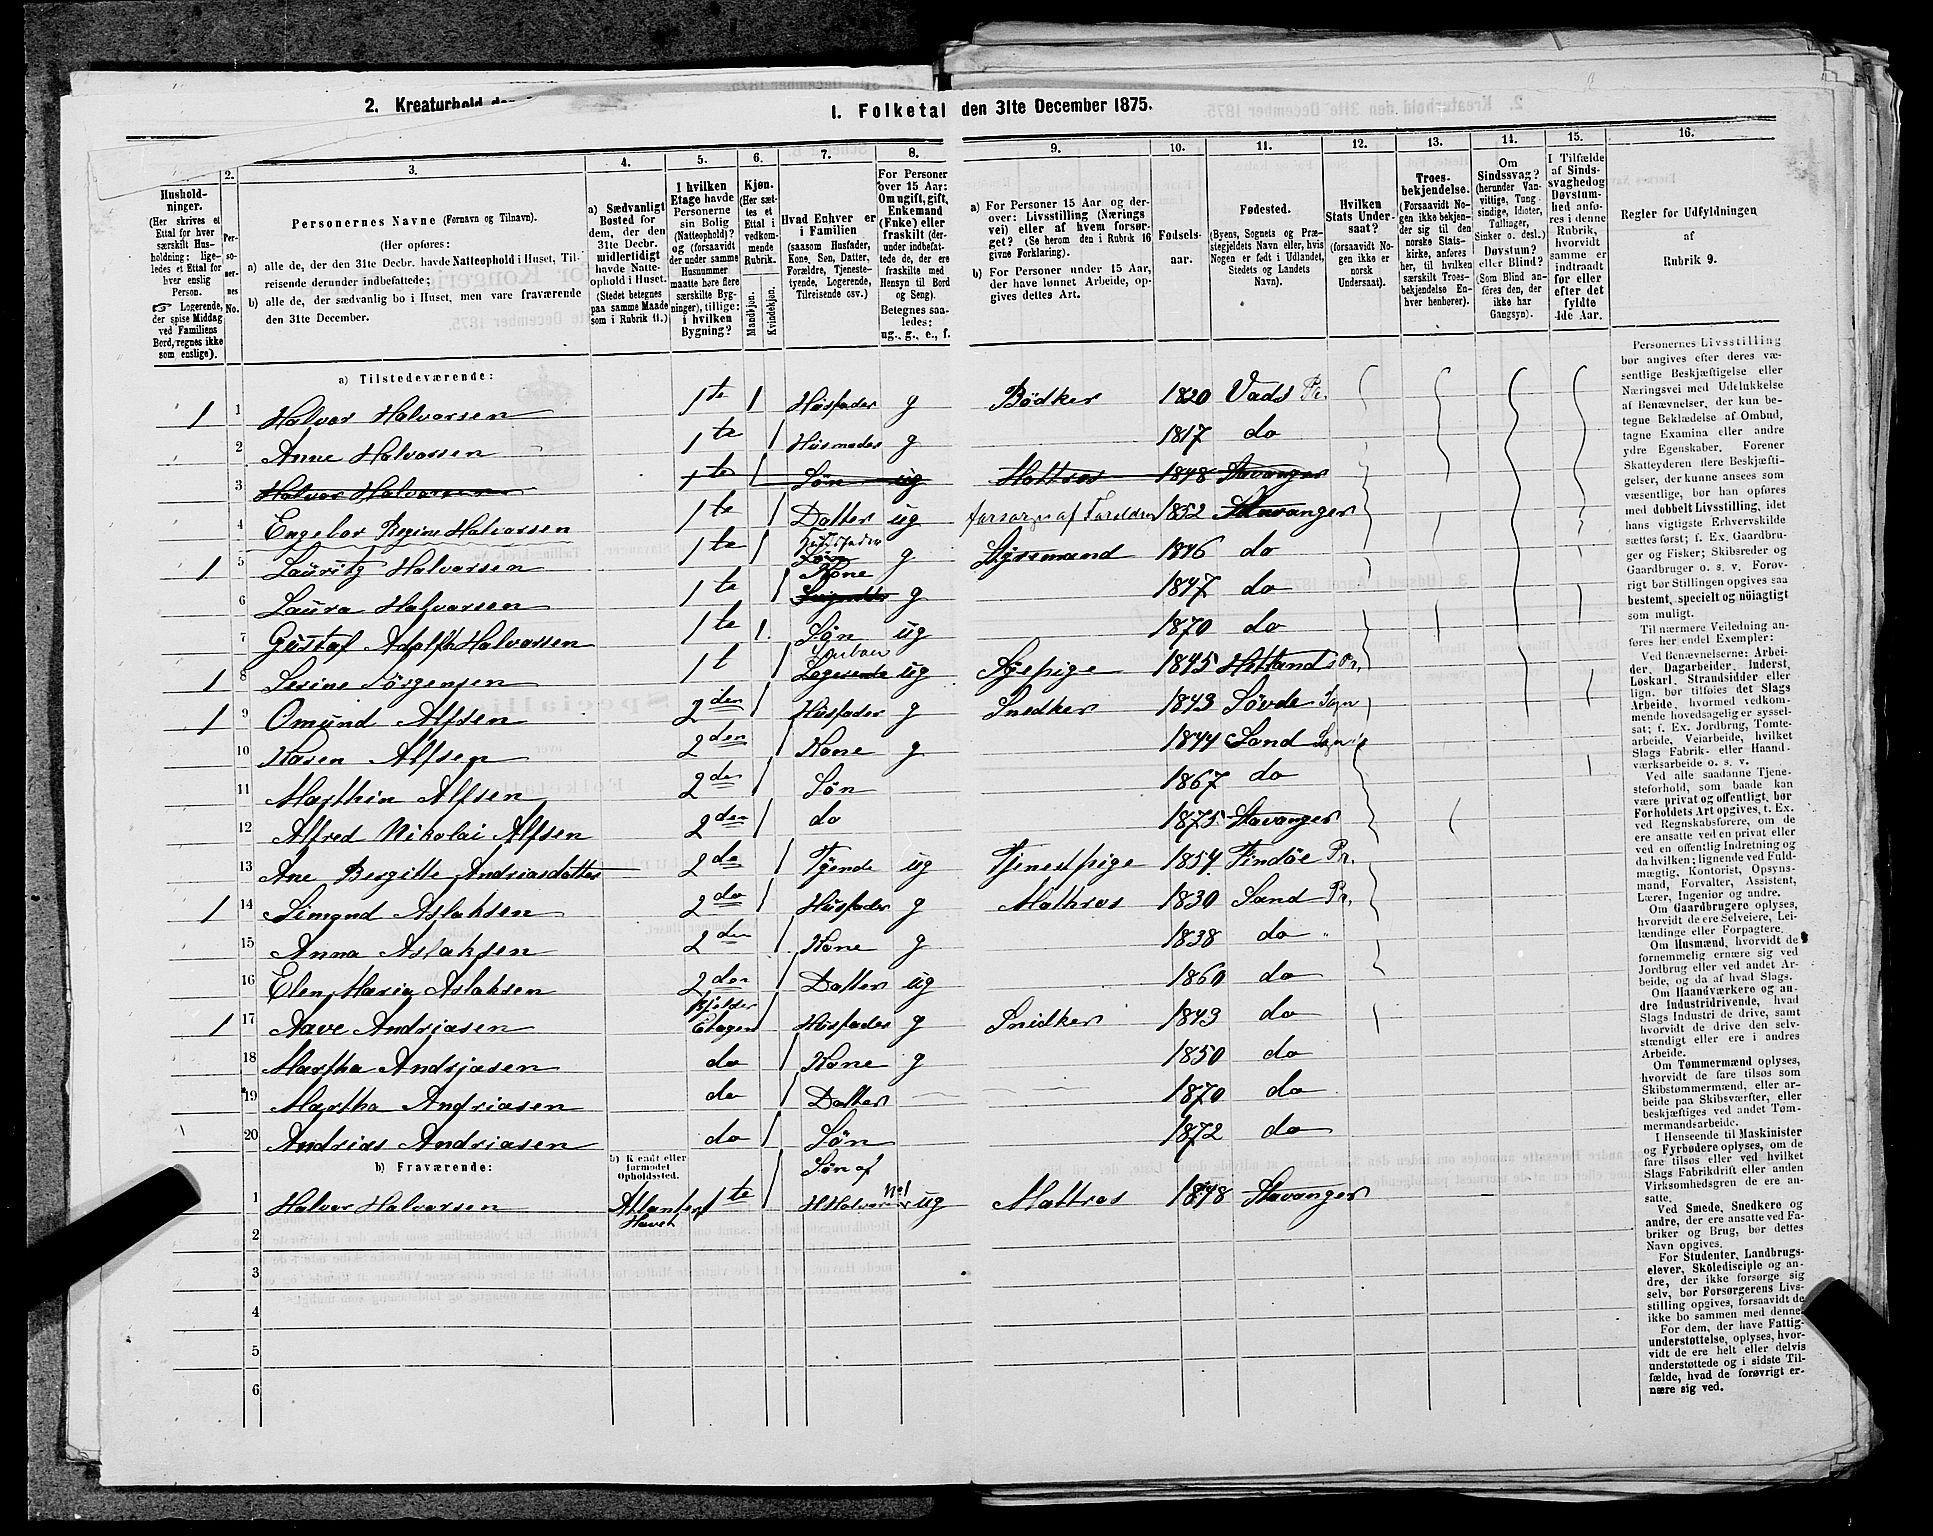 2. Kreaturhold den
1. Folketal den 31te December 1875.
3. 4. 5. 6. 7. 8. 9. 10. 11. 12. 13. 14. 15. 16.
2.
Hushold-
ninger.
(Her skrives et
Ettal for hver
særskilt Hus-
holdning: lige-
ledes et Ettal for
hver enslig
Person.
☞ Logerende,
der spise Middag
ved Familiens
Bord, regnes ikke
som enslige).
Per-
so-
ner-
nes
No.
Personernes Navne (Fornavn og Tilnavn).
(Her opføres:
a) alle de, der den 31te Decbr. havde Natteophold i Huset, Til-
reisende derunder indbefattede;
b) alle de, der sædvanlig bo i Huset, men vare fraværende
den 31te December.
a) Sædvanligt
Bosted for
dem, der den
31te Decbr.
midlertidigt
havde Natte-
ophold i Huset.
(Stedet betegnes
paa samme Maade
som i Rubrik 11.)
I hvilken
Etage havde
Personerne
sin Bolig
(Natteophold)?
og (forsaavidt
der under samme
Husnummer
maatte høre flere
særskilte Byg-
ninger), tillige:
i hvilken
Bygning?
Kjøn.
(Her sæt-
tes et
Ettal i
vedkom-
mende
Rubrik.
Mandkjøn.
Kvindekjøn.
Hvad Enhver er
i Familien
(saasom Husfader,
Kone, Søn, Datter,
Forældre, Tjeneste-
tyende, Logerende,
Tilreisende osv.)
For Personer
over 15 Aar:
Om ugift, gift,
Enkemand
(Enke) eller
fraskilt (der-
under indbefat-
tede de, der ere
fraskilte med
Hensyn til Bord
og Seng).
Betegnes saa-
ledes:
ug., g., e., f.
a) For Personer 15 Aar og der-
over: Livsstilling (Nærings
vei) eller af hvem forsør-
get? (Se herom den i Rubrik 16
givne Forklaring).
b) For Personer under 15 Aar,
der have lønnet Arbeide, op-
gives dettes Art.
Fødsels-
aar.
Fødested.
(Byens, Sognets og Præ-
stegjeldets Navn eller, hvis
Nogen er født i Udlandet,
Stedets og Landets
Navn).
Hvilken
Stats Under-
saat?
(forsaavidt No-
gen ikke er
norsk
Undersaat).
Troes-
bekjendelse.
(Forsaavidt No-
gen ikke bekjen-
der sig til den
norske Stats-
kirke, anføres
her, til hvilken
særskilt Troes-
bekjendelse En-
hver henhører).
Om
Sindssvag?
(herunder Van-
vittige, Tung-
sindige, Idioter,
Tullinger,
Sinker o. desl.)
Døvstum?
eller Blind?
(Som Blind an-
føres den, der
ikke har
Gangsyn).
I Tilfælde
af Sinds-
svaghed og
Døvstum-
hed anfø-
res i denne
Rubrik,
hvorvidt
samme er
indtraadt
før eller
efter det
fyldte
4de Aar.
Regler for Udfyldningen
af
Rubrik 9.
a) Tilstedeværende:
1 1 Halvor Halvorsen 1te 1 Husfader g Bødker 1820 Vads Pr.
2 Anne Halvorsen 1te 1 Husmoder g 1817 do
3 Halvor Halvorsen 1te 1 Søn ug Mattros 1848 Stavanger
4 Engebor Regine Halvorsen 1te 1 Datter ug forsørges af Foreldre 1852 Stavanger
Husfader
1 5 Lauritz Halvorsen 1te 1 Søn g Styrsmand 1846 do
Kone
6 Laura Halvorsen 1te 1 g 1847 do
7 Gustaf Adolph Halvorsen 1te 1 Søn ug 1870 do
1 8 Serine Jørgensen 1t 1 Logerende ug Sypige 1845 Hetlands Pr.
1 9 Omund Alfsen 2den 1 Husfader g Snedker 1843 Søvde Sogn
10 Karen Alfsen 2den 1 Kone g 1844 Sand Sogn
11 Marthin Alfsen 2den 1 Søn 1867 do
12 Alfred Nikolai Alfsen 2den 1 do 1875 Stavanger
13 Ane Bergitte Andriasdatter 2de 1 Tyende ug Tjenestpige 1854 Findöe Pr.
1 14 Simond Aslaksen 2de 1 Husfader g Mathros 1830 Sand Pr.
15 Anna Aslaksen 2den 1 Kone g 1838 do "
16 Elen Maria Aslaksen 2den 1 Datter ug 1860 do
Kjelder
1 17 Aave Andriasen Etagen 1 Husfader g Snidker 1843 do
18 Martha Andriasen do 1 Kone g 1850 do
19 Martha Andriasen do 1 Datter 1870 do
20 Andrias Andriasen do 1 Søn 1872 do
b) Fraværende:
b) Kjendt eller
formodet
Opholdssted.
Søn af
No 1
1 Halvor Halvorsen Atlanter 1te 1 H Halvorsen ug Mattros 1848 Stavanger
Havet
2
3
4
5
6
Personernes Livsstilling
bør angives efter deres væ-
sentlige Beskjæftigelse eller
Næringsvei med Udelukkelse
af Benævnelser, der kun be-
tegne Beklædelse af Ombud,
tagne Examina eller andre
ydre Egenskaber. Forener
Skatteyderen flere Beskjæfti-
gelser, der kunne ansees som
væsentlige, bør han opføres
med dobbelt Livsstilling, idet
hans vigtigste Erhvervskilde
sættes først; f. Ex. Gaardbru-
ger og Fisker; Skibsreder og
Gaardbruger o. s. v. Forøv-
rigt bør Stillingen opgives saa
bestemt, specielt og nöiagtigt
som muligt.
Til nærmere Veiledning an-
føres her endel Exempler:
Ved Benævnelserne: Arbei-
der, Dagarbeider, Inderst,
Løskarl, Strandsidder eller
lign. bør tilføies det Slags
Arbeide, hvormed vedkom-
mende hovedsagelig er syssel-
sat; f. Ex. Jordbrug, Tomte-
arbeide, Veiarbeide, hvilket
Slags Fabrik- eller Haand-
værksarbeide o. s. v.
Ved alle saadanne Tjene-
steforhold, som baade kan
være privat og offentligt, bør
Forholdets Art opgives, t. Ex.
ved Regnskabsførere, om de
ere ansatte ved en privat eller
ved en offentlig Indretning og
da hvilken; lignende ved Fuld-
mægtig, Kontorist, Opsyns-
mand, Forvalter, Assistent,
Lærer, Ingeniør og andre.
Om Gaardbrugere oplyses,
hvorvidt de ere Selveiere, Lei-
lændinge eller Forpagtere.
Om Husmænd, hvorvidt de
fornemmelig ernære sig ved
Jordbrug eller ved andet Ar-
beide, og da af hvad Slags.
Om Haandværkere og an-
dre Industridrivende, hvad
Slags Industri de drive, samt
hvorvidt de drive den selv-
stændigt eller ere i andres
Arbeide.
Om Tømmermænd oplyses,
hvorvidt de fare tilsøs som
Skibstømmermænd, eller ar-
beide paa Skibsværfter, eller
beskjæftiges ved andet Tøm-
mermandsarbeide.
I Henseende til Maskinister
og Fyrbødere oplyses, om de
fare tilsøs eller ved hvilket
Slags Fabrikdrift eller anden
Virksomhedsgren de ere an-
satte.
Ved Smede, Snedkere og
andre, der ere ansatte ved Fa-
briker og Brug, bør dettes
Navn opgives.
For Studenter, Landbrugs-
elever, Skoledisciple og an-
dre, der ikke forsørge sig
selv, bør Forsørgerens Livs-
stilling opgives, forsaavidt de
ikke bo sammen med denne.
For dem, der have Fattig-
understøttelse, oplyses, hvor-
vidt de ere helt eller delvis
understøttede og i sidste Til-
fælde, hvad de forøvrigt er-
nære sig ved.